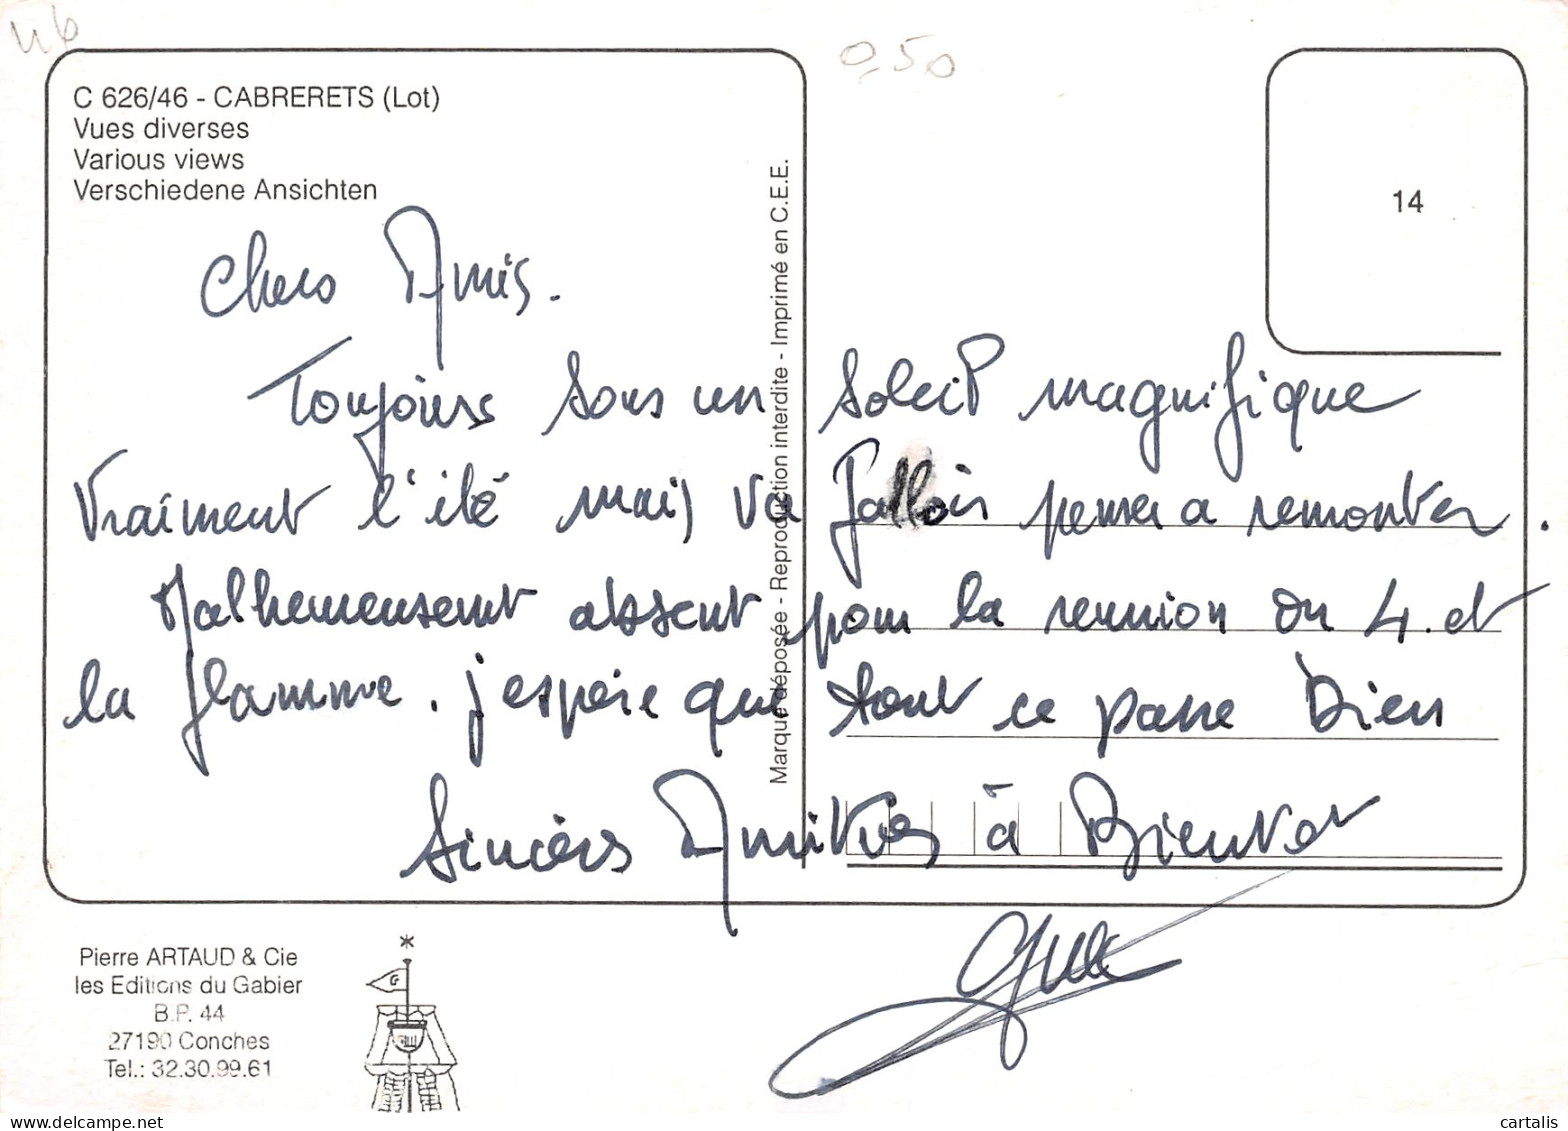 46
0,50
C 626/46 - CABRERETS (Lot)
Vues diverses
Various views
Verschiedene Ansichten
14
Chers Amis.
Toujours sous un soleil magnifique
Vraiment l'été mais va falloir penser a remonter.
Malheureusement absent pour la reunion du 4. et
la flamme. j'espère que tout ce passe Bien
Sincères Amitiés à Bientot
Marque déposée - Reproduction interdite - Imprimé en C.E.E.
Pierre ARTAUD & Cie
les Editions du Gabier
B.P. 44
27190 Conches
Tel.: 32.30.99.61
G
cartalis